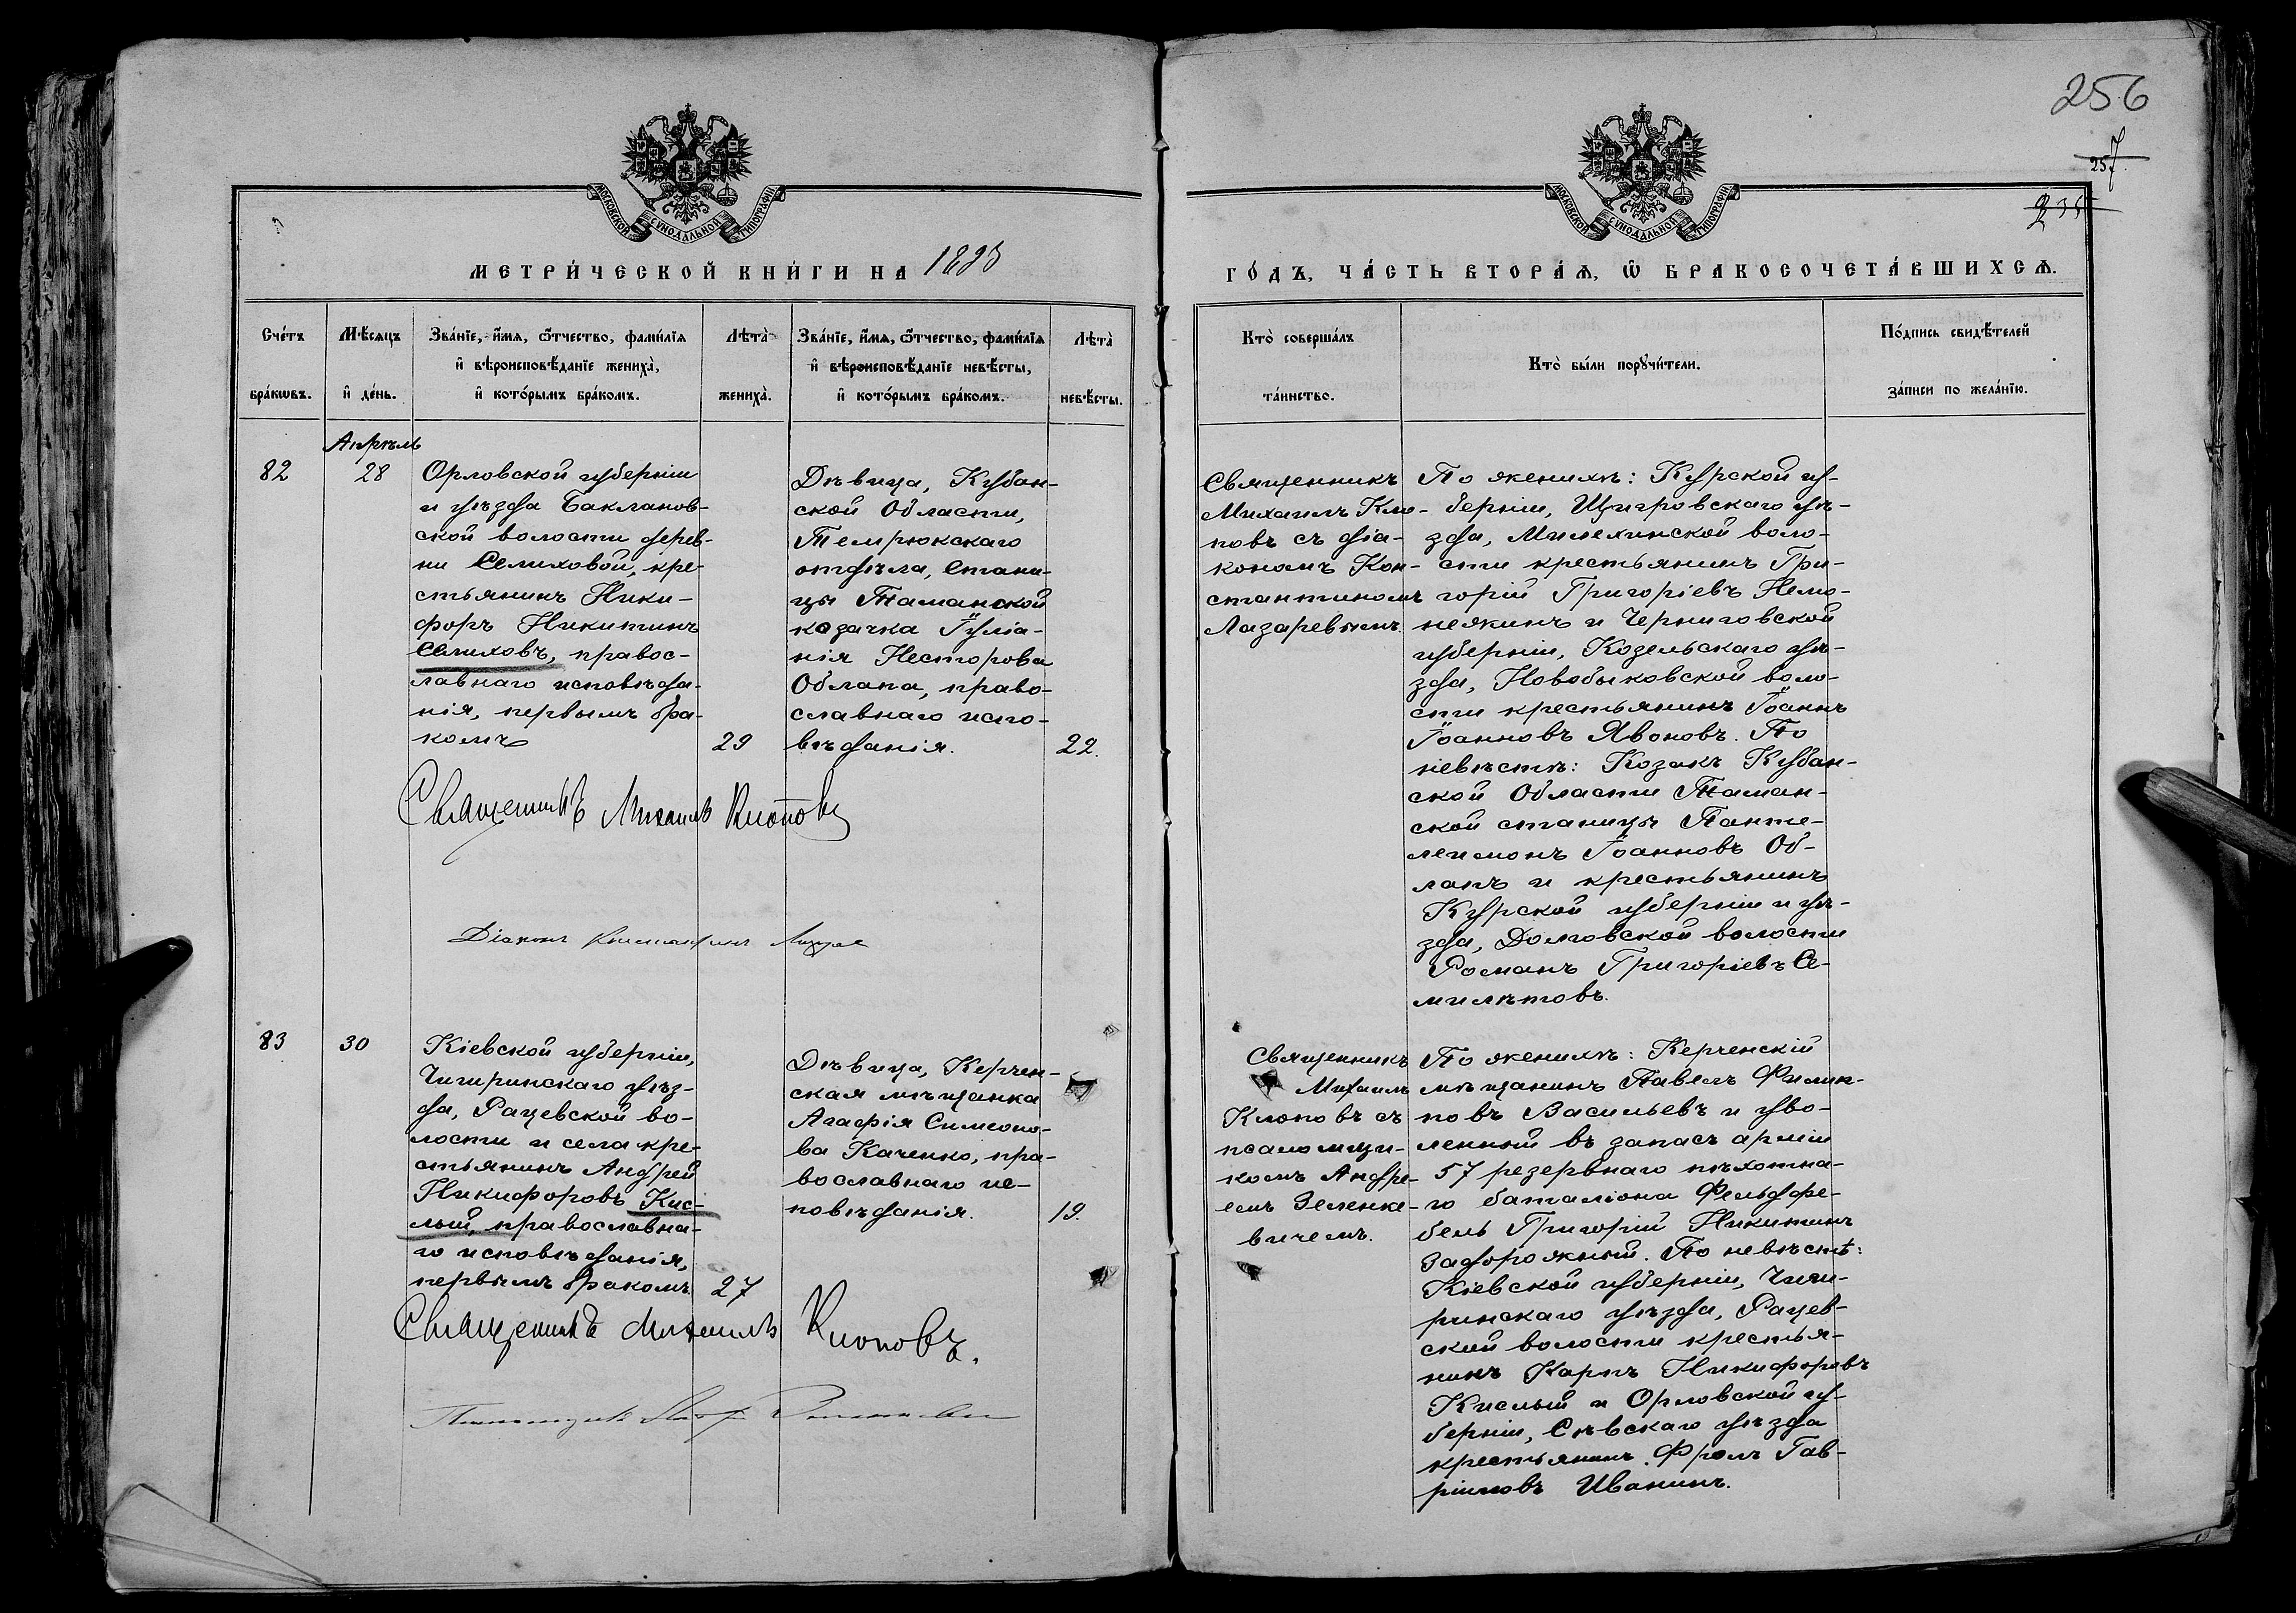 256
257.
235
МОСКОВСКОЙ СУНОДАЛЬНОЙ ТИПОГРАФІИ
МОСКОВСКОЙ СУНОДАЛЬНОЙ ТИПОГРАФІИ
МЕТРИ́ЧЕСКОЙ КНИ́ГИ НА 1895
ГО́ДЪ, ЧА́СТЬ ВТОРА́Ѧ, Ѿ БРАКОСОЧЕТА́ВШИХСѦ.
Сче́тъ
бра́кѡвъ.
Мѣ́сѧцъ
и҆ де́нь.
Зва́нїе, и҆́мѧ, ѻ҆́тчество, фами́лїѧ
и҆ вѣроисповѣ́данїе жениха̀,
и҆ кото́рымъ бра́комъ.
Лѣта̀
жениха̀.
Зва́нїе, и҆́мѧ, ѻ҆́тчество, фами́лїѧ
и҆ вѣроисповѣ́данїе невѣ́сты,
и҆ кото́рымъ бра́комъ.
Лѣта̀
невѣ́сты.
Кто̀ соверша́лъ
та́инство.
Кто̀ бы́ли порꙋчи́тели.
По́дпись свидѣ́телей
за́писи по жела́нїю.
Апрѣль
82
28
Орловской губерніи
и уѣзда Баклановъ-
ской волости дерев-
ни Селиховой, кре-
стьянинъ Ники-
форъ Никитинъ
Селиховъ, правос-
лавнаго исповѣда-
нія, первымъ бра-
комъ
29
Дѣвица, Кубан-
ской Области,
Темрюкскаго
отдѣла, Стани-
цы Таманской
козачка Іуліа-
нія Несторова
Облапа, право-
славнаго испо-
вѣданія.
22.
Священникъ
Михаилъ Клю-
повъ съ діа-
кономъ Кон-
стантиномъ
Лазаревымъ.
По женихѣ: Курской гу-
берніи, Щигровскаго уѣ-
зда, Милехинской воло-
сти крестьянинъ Гри-
горій Григоріевъ Немо-
неякинъ и Черниговской
губерніи, Козельскаго уѣ-
зда, Новобыковской воло-
сти крестьянинъ Іоаннъ
Іоанновъ Явоновъ. По
невѣстѣ: Козакъ Кубан-
ской Области Таман-
ской станицы Панте-
леимонъ Іоанновъ Об-
лапъ и крестьянинъ
Курской губерніи и уѣ-
зда, Долговской волости
Романъ Григоріевъ Се-
милѣтовъ.
Священникъ Михаилъ Клюповъ
Діаконъ Константинъ
83
30
Кіевской губерніи,
Чигиринскаго уѣз-
да, Рацевской во-
лости и села кре-
стьянинъ Андрей
Никифоровъ Кис-
лый, православна-
го исповѣданія,
первымъ бракомъ
27
Дѣвица, Керчен-
ская мѣщанка
Агафія Симеоно-
ва Каченко, пра-
вославнаго ис-
повѣданія.
19.
Священникъ
Михаилъ
Клюповъ съ
псаломщи-
комъ Андре-
емъ Зеленке-
вичемъ.
По женихѣ: Керченскій
мѣщанинъ Павелъ Филип-
повъ Васильевъ и уво-
ленный въ запасъ арміи
57 резервнаго пѣхотна-
го баталіона Фельдфе-
бель Григорій Никитинъ
Задорожный. По невѣстѣ:
Кіевской губерніи, Чиги-
ринскаго уѣзда, Рацев-
ской волости крестья-
нинъ Карпъ Никифоровъ
Кислый и Орловской гу-
берніи, Сѣвскаго уѣзда
крестьянинъ Фролъ Гав-
ріиловъ Иванинъ.
Священникъ Михаилъ Клюповъ.